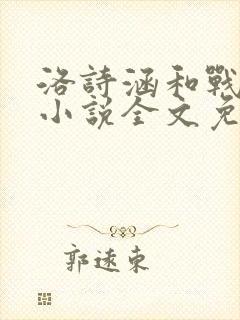 洛詩涵和戰
小說全文免
郭遠東